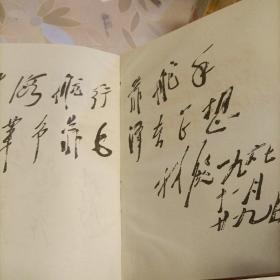 海航行靠舵手
革命靠毛泽东思想
林彪
一九六七
十一月
廿九日